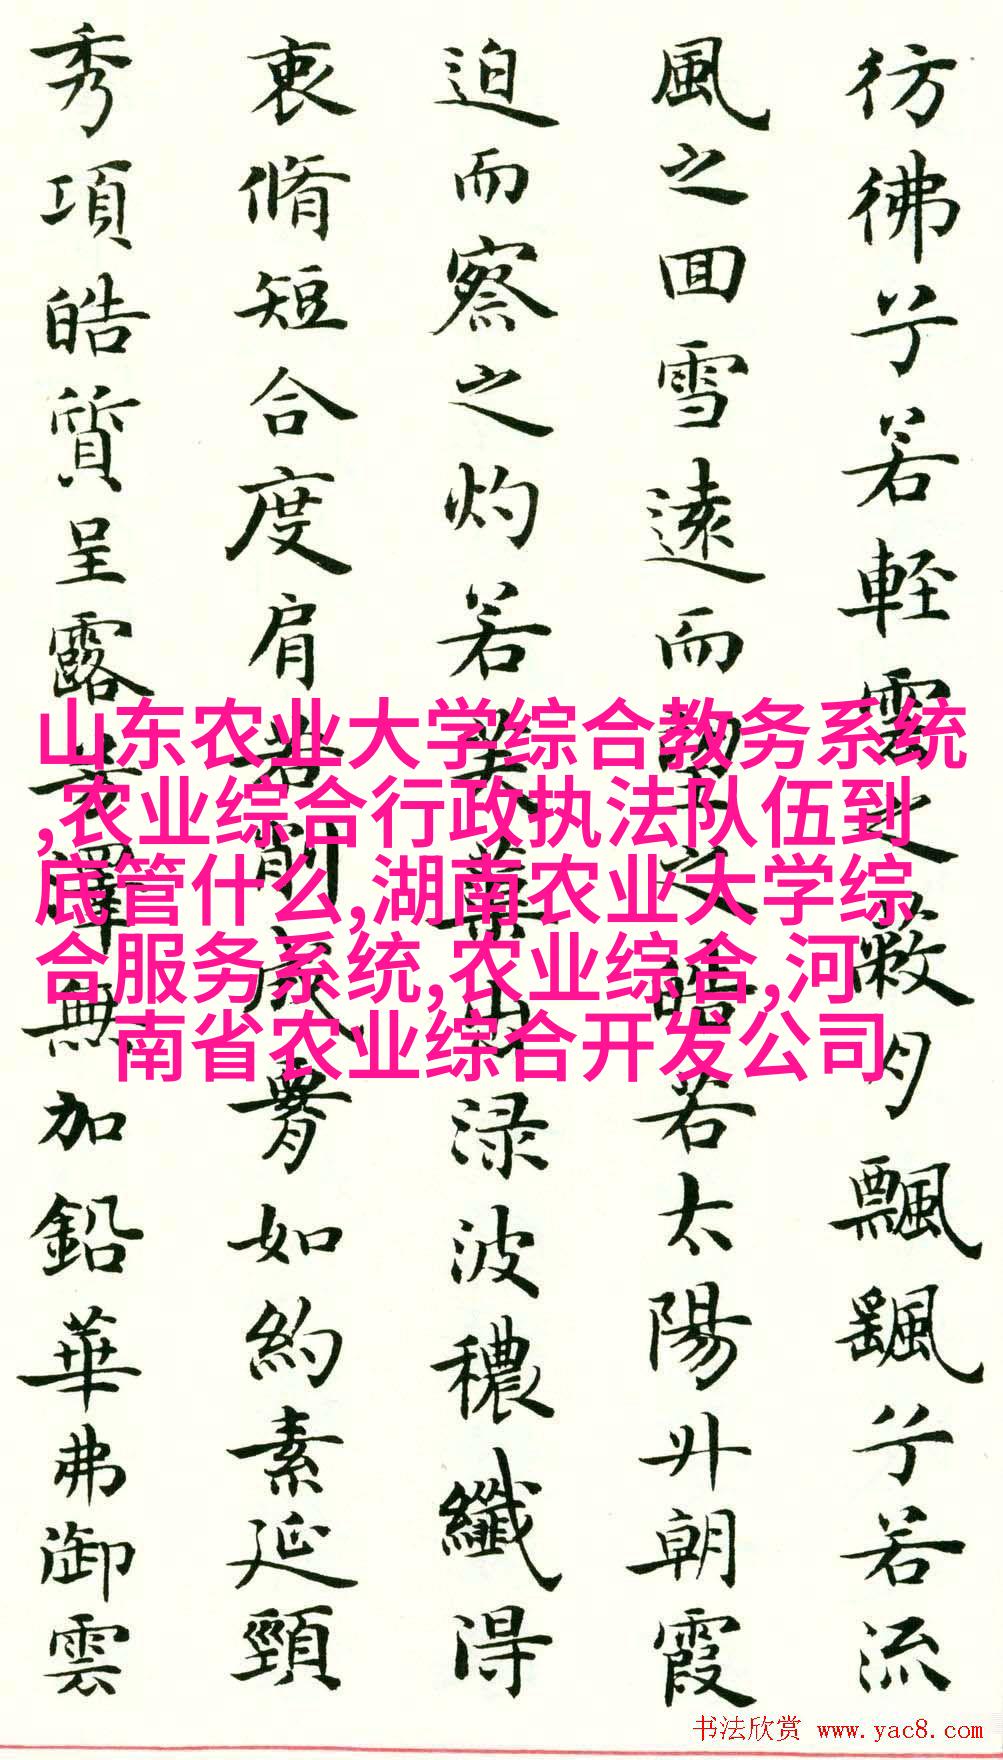 彷彿兮若輕雲之蔽月飄颻兮若流
風之回雪遠而望之皓若太陽升朝霞
迫而察之灼若芙蕖出渌波穠纖得
衷脩短合度肩若削成䙅如約素延頸
秀項皓質呈露芳澤無加鉛華弗御雲
山东农业大学综合教务系统
,农业综合行政执法队伍到
底管什么,湖南农业大学综
合服务系统,农业综合,河
南省农业综合开发公司
书法欣赏 www.yac8.com